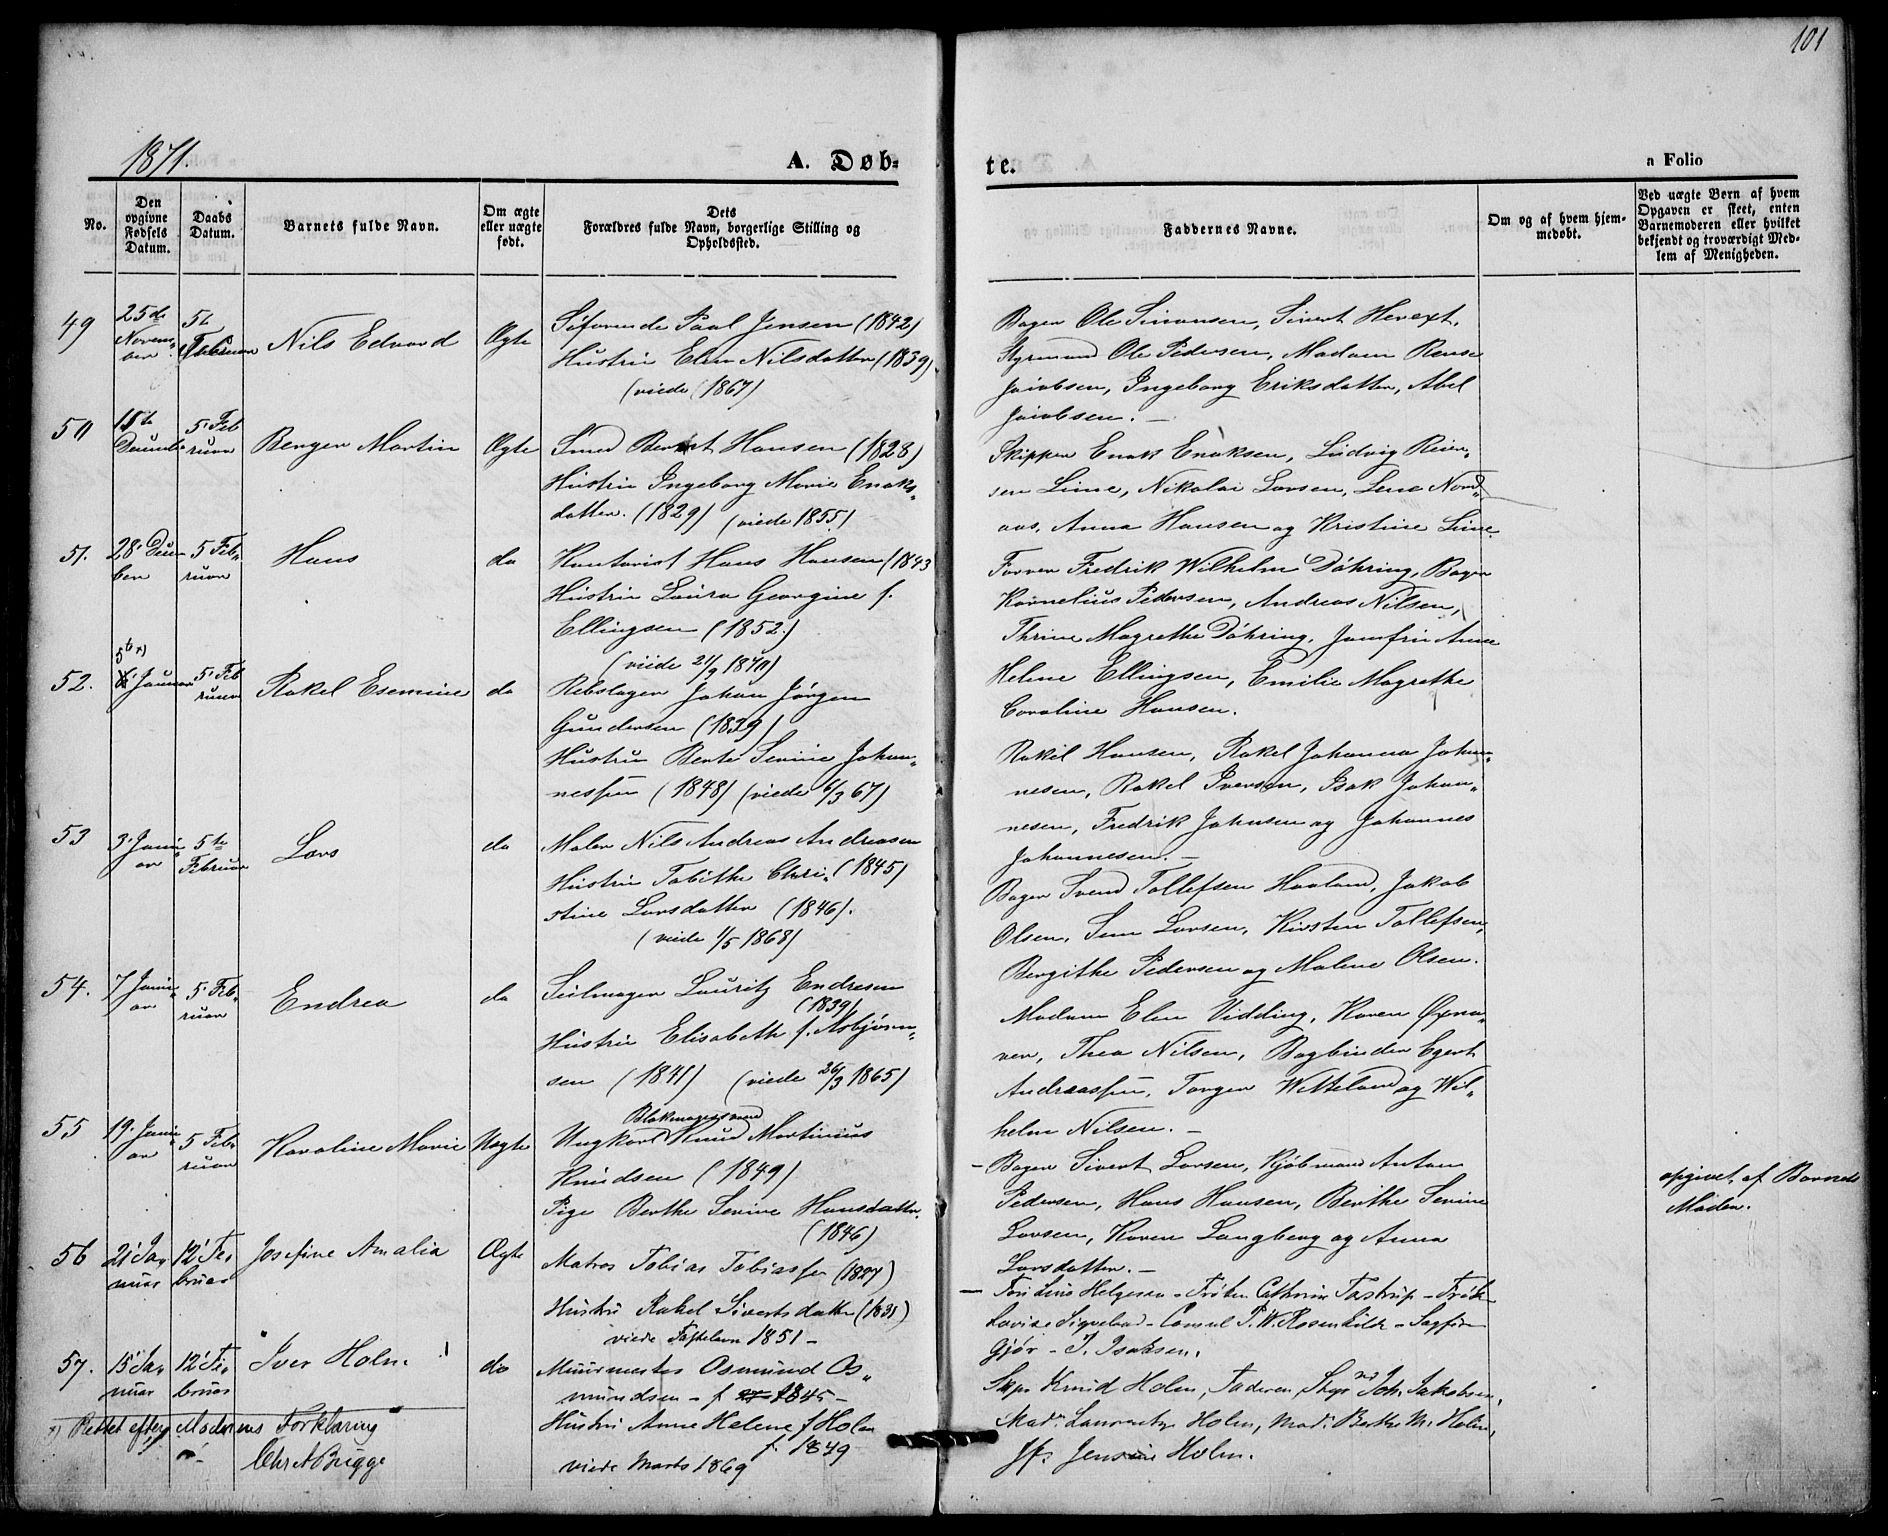 101
1871.
A. Døb-
te.
a Folio
No.
Den opgivne Fødsels Datum.
Daabs Datum.
Barnets fulde Navn.
Om ægte eller uægte født.
Dets Forældres fulde Navn, borgerlige Stilling og Opholdssted.
Faddernes Navne.
Om og af hvem hjemmedøbt.
Ved uægte Børn af hvem Opgaven er skeet, enten Barnemoderen eller hvilket bekjendt og troværdigt Medlem af Menigheden.
49
25de Novem„ber
5te Februar
Nils Edvard
Ægte
Søfarende Paul Jensen (1842)
Hustru Elen Nilsdatter (1839)
(viede 1867)
Bager Ole Simonsen, Sivert Herext,
Styrmand Ole Pedersen, Madam Rense
Jacobsen, Ingeborg Eriksdatter, Abel
Jacobsen. –
50
15te December
5' Februar
Berger Martin
Ægte
Smed Berent Hansen (1828)
Hustru Ingeborg Marie Enoks„
datter. (1829) (viede 1855)
Skipper Enok Enoksen, Ludvig Reier„
sen Lime, Nikolai Larsen, Lene Nord„
aas, Anna Hansen og Kristine Lime.
51.
28' December
5 Feb„ruar
Hans
do
Kontorist Hans Hansen (1843
Hustru Laura Georgine f.
Ellingsen (1852.)
(viede 21/9 1870)
Farver Fredrik Wilhelm Döhring, Bager
Kornelius Pedersen, Andreas Nilsen,
Thrine Magrethe Döhring, Jomfru Anne
Helene Ellingsen, Emilie Magrethe
Caroline Hansen.
52.
5te x)
Januar
5' Februar
Rakel Esemine
do
Rebslager Johan Jørgen
Gundersen (1839)
Hustru Berte Serine Johan„
nessen (1848) (viede 6/3 67)
Rakel Hansen, Rakel Johanna Johan„
nesen, Rakel Iversen, Isak Johan„
nesen, Fredrik Johnsen og Johannes
Johannesen. –
53
3' Janu„ar
5te Februar
Lars
do
Maler Nils Andreas Andreasen
Hustru Tabithe Chri„ (1845)
stine Larsdatter (1846).
(viede 1/5 1868)
Bager Svend Tollefsen Haaland, Jakob
Olsen, Sem Larsen, Kirsten Tollefsen,
Bergithe Pedersen og Malene Olsen.
54.
7 Janu„ar
5' Feb„ruar
Endrea
do
Seilmager Lauritz Endresen
(1839)
Hustru Elisabeth f. Asbjørn„
sen (1841) (viede 26/3 1865)
Madam Elen Vidding, Karen Øxna„
ven, Thea Nilsen, Bogbinder Egert
Andreassen, Torger Wetteland og Wil„
helm Nilsen. –
55
19' Janu„ar
5 Feb„ruar
Karoline Marie
Uægte
Blokmagersvend
Ungkarl Knud Martinius
Knudsen (1849)
Pige Berthe Serine Hansdatter.
(1846)
– Bager Sivert Larsen, Kjøbmand Anton
Pedersen, Hans Hansen, Berthe Serine
Larsen, Karen Langberg og Anna
Larsdatter. –
opgivet af Barnets
Moder.
56
21' Januar
12' Februar
Josefine Amalia
Ægte
Matros Tobias Tobiassen (1827)
Hustru Rakel Sivertsdatter (1831)
viede Fastelavn 1851 –
– Helgesen – Frøken Cathrine Tastrup – Frøken
Lovise Sigveland – Consul P. W. Rosenkilde – Sagfører
Gjør – I. Isaksen.
57.
15' Januar
12' Februar
Iver Holm.
do
Muurmester Osmund Os„
mundsen – f 1845 –
Hustru Anne Helene f Holm
f. 1849
viede Marts 1869
Skipr Knud Holm, Faderen, Skipr Joh. Jakobsen,
Mad. Laurentze Holm, Mad. Berthe M. Holm,
Jfr. Jensine Holm.
x) Rettet efter Moderens Forklaring
Chr A Brigge